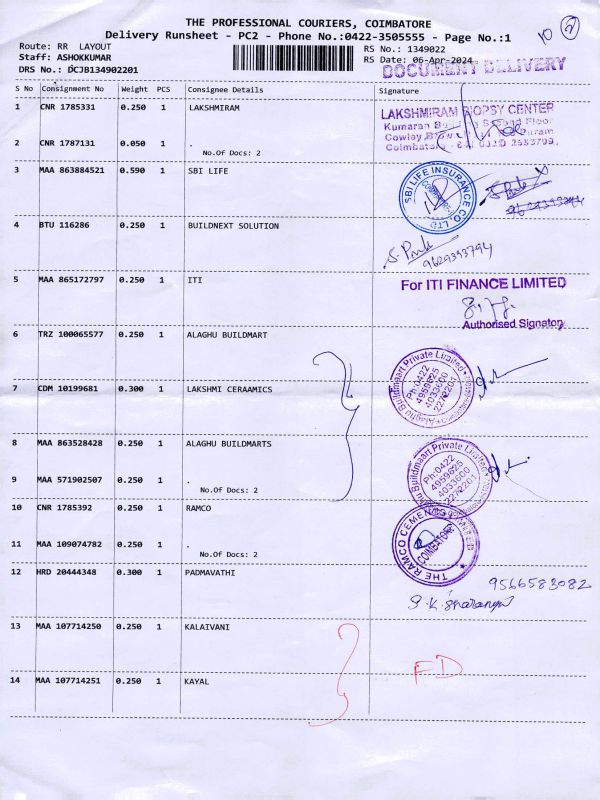 THE PROFESSIONAL COURIERS, COIMBATORE
Delivery Runsheet - PC2 - Phone No.:0422-3505555 - Page No.:1
Route: RR LAYOUT
RS No.: 1349022
Staff: ASHOKKUMAR
RS Date: 06-Apr-2024
DRS No.: DCJB134902201
DOCUMENT DELIVERY
S No Consignment No Weight PCS Consignee Details Signature
1 CNR 1785331 0.250 1 LAKSHMIRAM
LAKSHMIRAM BIOPSY CENTER
Kumaran Second Floor
Cowley
Coimbatore
2 CNR 1787131 0.050 1 .
No.Of Docs: 2
3 MAA 863884521 0.590 1 SBI LIFE
SBI LIFE INSURANCE CO. LTD
4 BTU 116286 0.250 1 BUILDNEXT SOLUTION
9629393794
5 MAA 865172797 0.250 1 ITI
For ITI FINANCE LIMITED
Authorised Signatory
6 TRZ 100065577 0.250 1 ALAGHU BUILDMART
7 CDM 10199681 0.300 1 LAKSHMI CERAAMICS
Alaghu Buildmaart Private Limited
Ph:0422
4959625
4033600
2272201
8 MAA 863528428 0.250 1 ALAGHU BUILDMARTS
Buildmaart Private Limited
Ph:0422
4959625
4033600
2272201
9 MAA 571902507 0.250 1 .
No.Of Docs: 2
10 CNR 1785392 0.250 1 RAMCO
THE RAMCO CEMENTS LIMITED
COIMBATORE
11 MAA 109074782 0.250 1 .
No.Of Docs: 2
12 HRD 20444348 0.300 1 PADMAVATHI
9566583082
13 MAA 107714250 0.250 1 KALAIVANI
FD
14 MAA 107714251 0.250 1 KAYAL